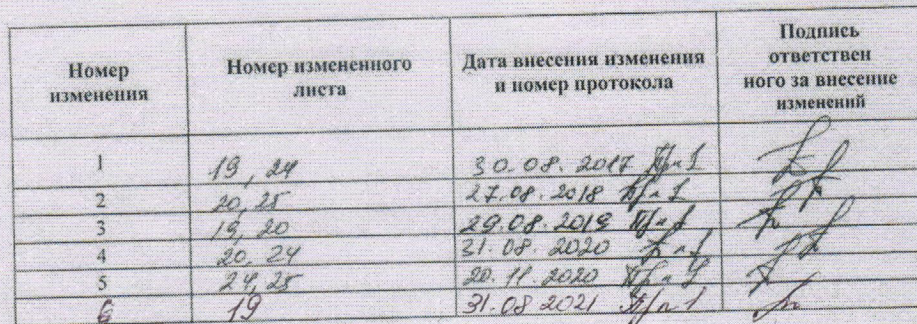 Номер изменения
Номер измененного листа
Дата внесения изменения и номер протокола
Подпись ответствен ного за внесение изменений
1 19, 24 30.08.2017
2 20, 25 27.08.2018
3 19, 20 29.08.2019
4 20, 24 31.08.2020
5 24, 25 20.11.2020
6 19 31.08 2021